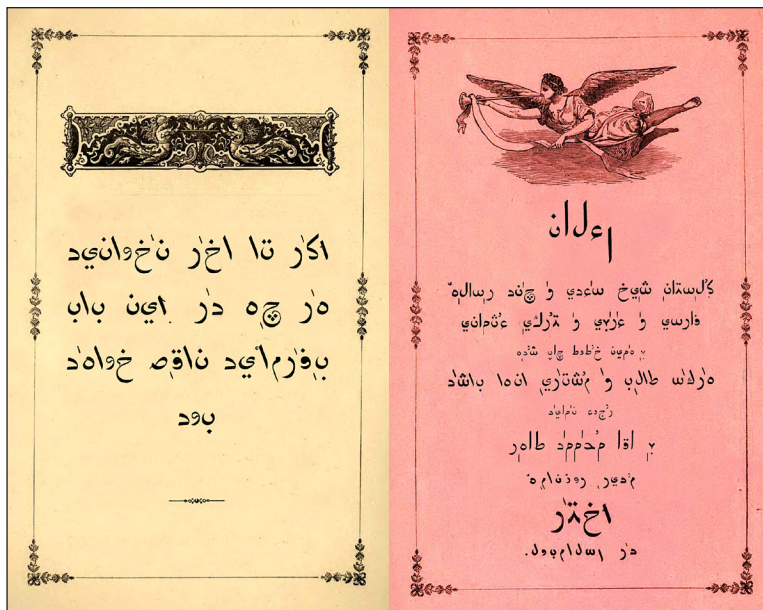 اگر تا اخر نخوانید
هر چه در این باب
بفرمائید ناقص خواهد
بود
اعلان
گلستان شیخ سعدی و چند رساله
فارسی و عربی و ترکی عثمانی
به همین خطوط چاپ شده
هرکس طالب و مشتری انها باشد
رجوع نماید
به اقا محمد طاهر
مدیر روزنامه
اختر
در اسلامبول.